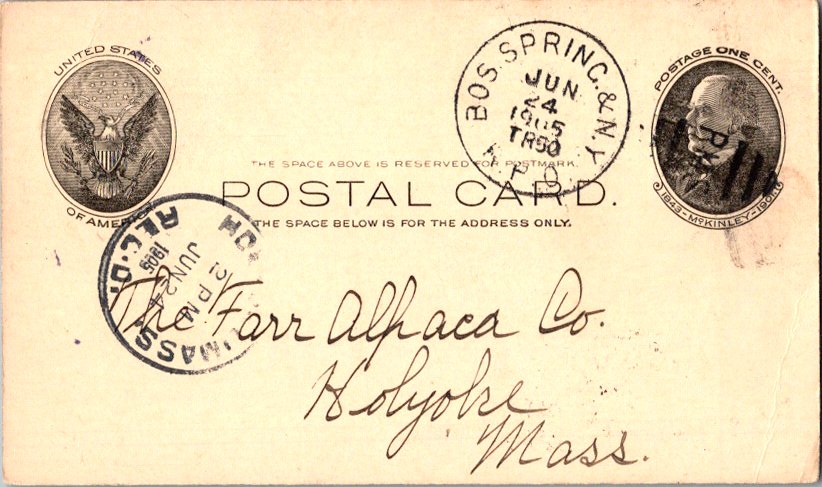 UNITED STATES
OF AMERICA
BOS. SPRING. & N.Y.
JUN
24
1905
TR50
R.P.O.
POSTAGE ONE CENT.
1843-McKINLEY-1901
THE SPACE ABOVE IS RESERVED FOR POSTMARK.
POSTAL CARD.
THE SPACE BELOW IS FOR THE ADDRESS ONLY.
REC'D.
MASS
12 PM
JUN 24
1905
The Farr Alpaca Co.
Holyoke
Mass.